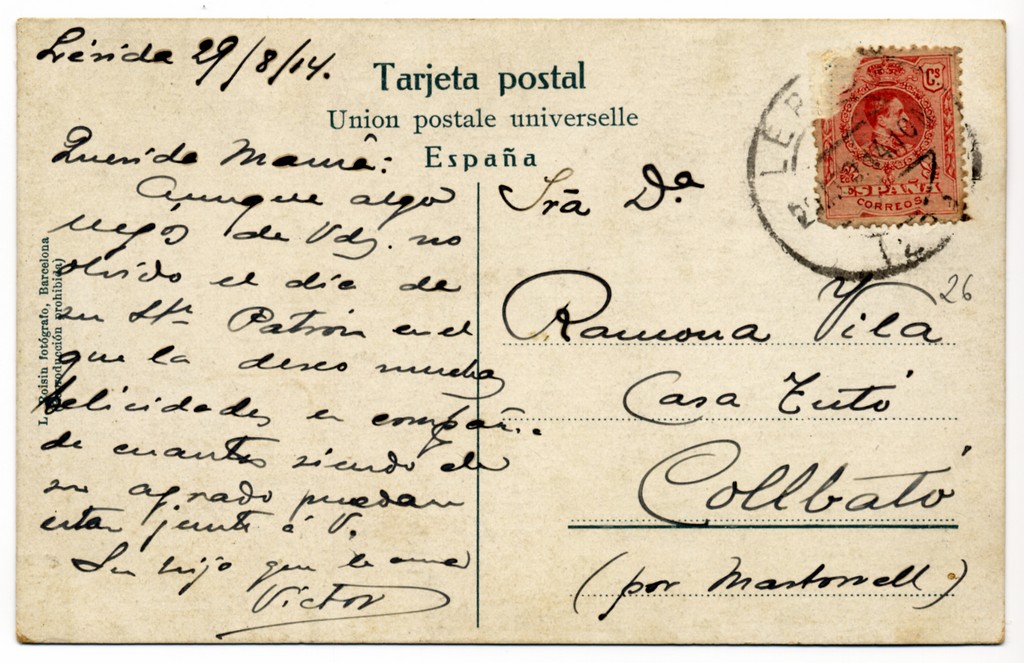 Lérida 29/8/14.
Tarjeta postal
Union postale universelle
España
Querida Mamá:
Aunque algo
lejos de Vds. no
olvido el día de
su Sto Patrón en el
que la deseo muchas
felicidades en compañia
de cuantos siendo de
su agrado puedan
estar junto á V.
Su hijo que le ama
Victor
L. Roisin fotógrafo, Barcelona
(Reproducción prohibida)
Srã Dª
Ramona Vila
Casa Tutó
Collbató
(por Martorell)
26
Cs
ESPAÑA
CORREOS
LER